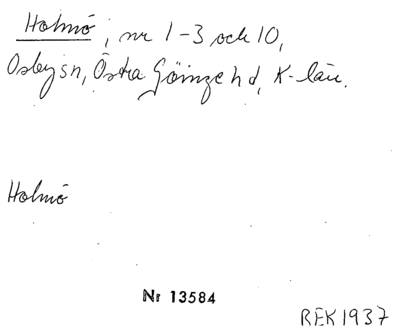 Holmö, nr 1-3 och 10,
Osby sn, Östra Göinge hd, K-län.
Holmö
Nr 13584
REK 1937